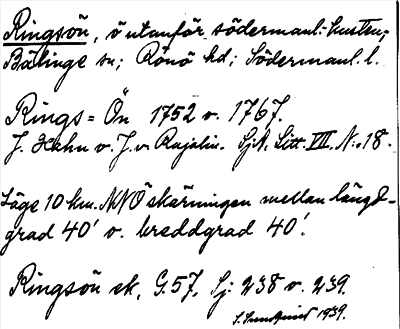 Ringsön, ö utanför södermanl. kusten;
Bälinge sn; Rönö hd; Södermanl. l.
Rings = Ön 1752 o. 1767.
J. Hahn o. J. v. Rajalin. SjA. Litt. VIII. N:o 18.
Läge 10 km. NNÖ skärningen mellan längd-
grad 40' o. breddgrad 40'.
Ringsön ek, G. 57, Sj: 238 o. 239.
1939.